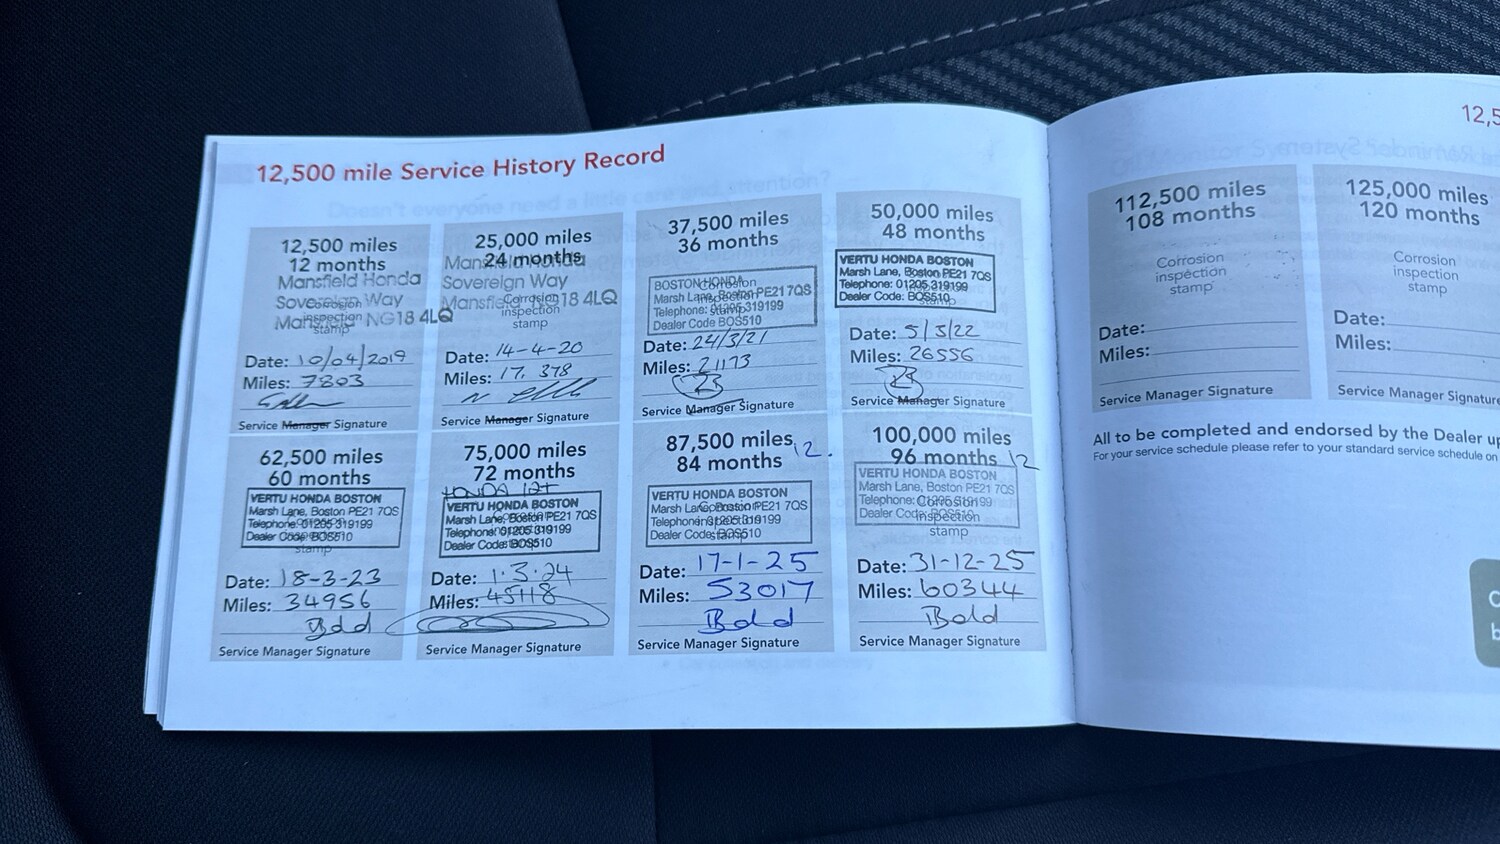 12,500 mile Service History Record
12,500 miles
12 months
Mansfield Honda
Sovereign Way
Mansfield NG18 4LQ
Corrosion
inspection
stamp
Date: 10/04/2019
Miles: 7803
Service Manager Signature
25,000 miles
24 months
Mansfield Honda
Sovereign Way
Mansfield NG18 4LQ
Corrosion
inspection
stamp
Date: 14-4-20
Miles: 17,378
Service Manager Signature
37,500 miles
36 months
BOSTON HONDA
Marsh Lane, Boston PE21 7QS
Telephone: 01205 319199
Dealer Code BOS510
Corrosion
inspection
stamp
Date: 24/3/21
Miles: 21173
23
Service Manager Signature
50,000 miles
48 months
VERTU HONDA BOSTON
Marsh Lane, Boston PE21 7QS
Telephone: 01205 319199
Dealer Code: BOS510
stamp
Date: 5/3/22
Miles: 26556
23
Service Manager Signature
62,500 miles
60 months
VERTU HONDA BOSTON
Marsh Lane, Boston PE21 7QS
Telephone: 01205 319199
Dealer Code: BOS510
stamp
Date: 18-3-23
Miles: 34956
Service Manager Signature
75,000 miles
72 months
HONDA 12+
VERTU HONDA BOSTON
Marsh Lane, Boston PE21 7QS
Telephone: 01205 319199
Dealer Code: BOS510
Date: 1.3.24
Miles: 45118
Service Manager Signature
87,500 miles
84 months 12.
VERTU HONDA BOSTON
Marsh Lane, Boston PE21 7QS
Telephone: 01205 319199
Dealer Code: BOS510
stamp
Date: 17-1-25
Miles: 53017
Service Manager Signature
100,000 miles
96 months 12
VERTU HONDA BOSTON
Marsh Lane, Boston PE21 7QS
Telephone: 01205 319199
Dealer Code: BOS510
Corrosion
inspection
stamp
Date: 31-12-25
Miles: 60344
Service Manager Signature
12,5
112,500 miles
108 months
Corrosion
inspection
stamp
Date:
Miles:
Service Manager Signature
125,000 miles
120 months
Corrosion
inspection
stamp
Date:
Miles:
Service Manager Signature
All to be completed and endorsed by the Dealer up
For your service schedule please refer to your standard service schedule on